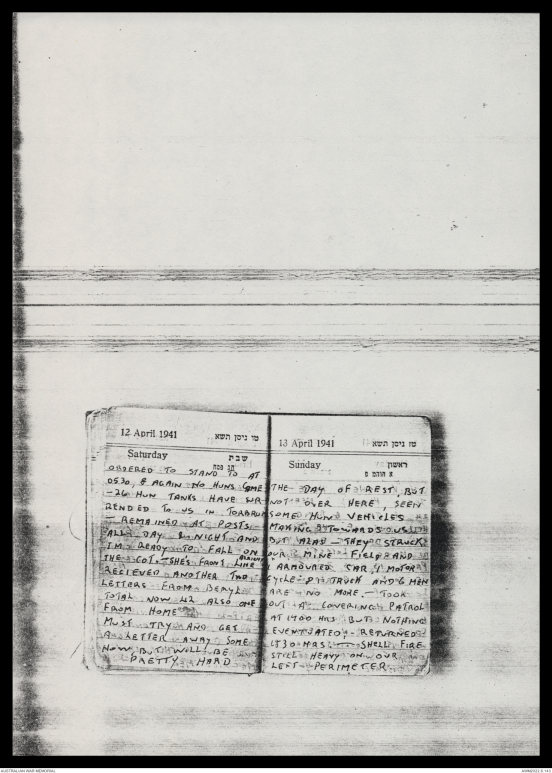 12 April 1941
טו ניסן תשא
Saturday
שבת
חג פסח
ORDERED TO STAND TO AT
0530, & AGAIN NO HUNS CAME
- 26 HUN TANKS HAVE SUR
RENDED TO US IN TOBRUK
- REMAINED AT POSTS
ALL DAY & NIGHT AND
I'M READY TO FALL ON
THE COT. - SHE'S FRONT LINE ALRIGHT
RECIEVED ANOTHER TWO
LETTERS FROM BERYL
TOTAL NOW 42 ALSO ONE
FROM HOME
MUST TRY AND GET
A LETTER AWAY SOME
HOW BUT WILL BE
PRETTY HARD
13 April 1941
טז ניסן תשא
Sunday
ראשון
א חוהמ פ
THE DAY OF REST, BUT
NOT OVER HERE, SEEN
SOME HUN VEHICLES
MAKING TOWARDS US
BUT ALAS - THEY STRUCK
OUR MINE FIELD AND
1 ARMOURED CAR, 1 MOTOR
CYCLE TRUCK AND 6 MEN
ARE NO MORE. - TOOK
OUT A COVERING PATROL
AT 1400 HRS BUT NOTHING
EVENTUATED - RETURNED
1830 HRS - SHELL FIRE
STILL HEAVY ON OUR
LEFT PERIMETER
AUSTRALIAN WAR MEMORIAL